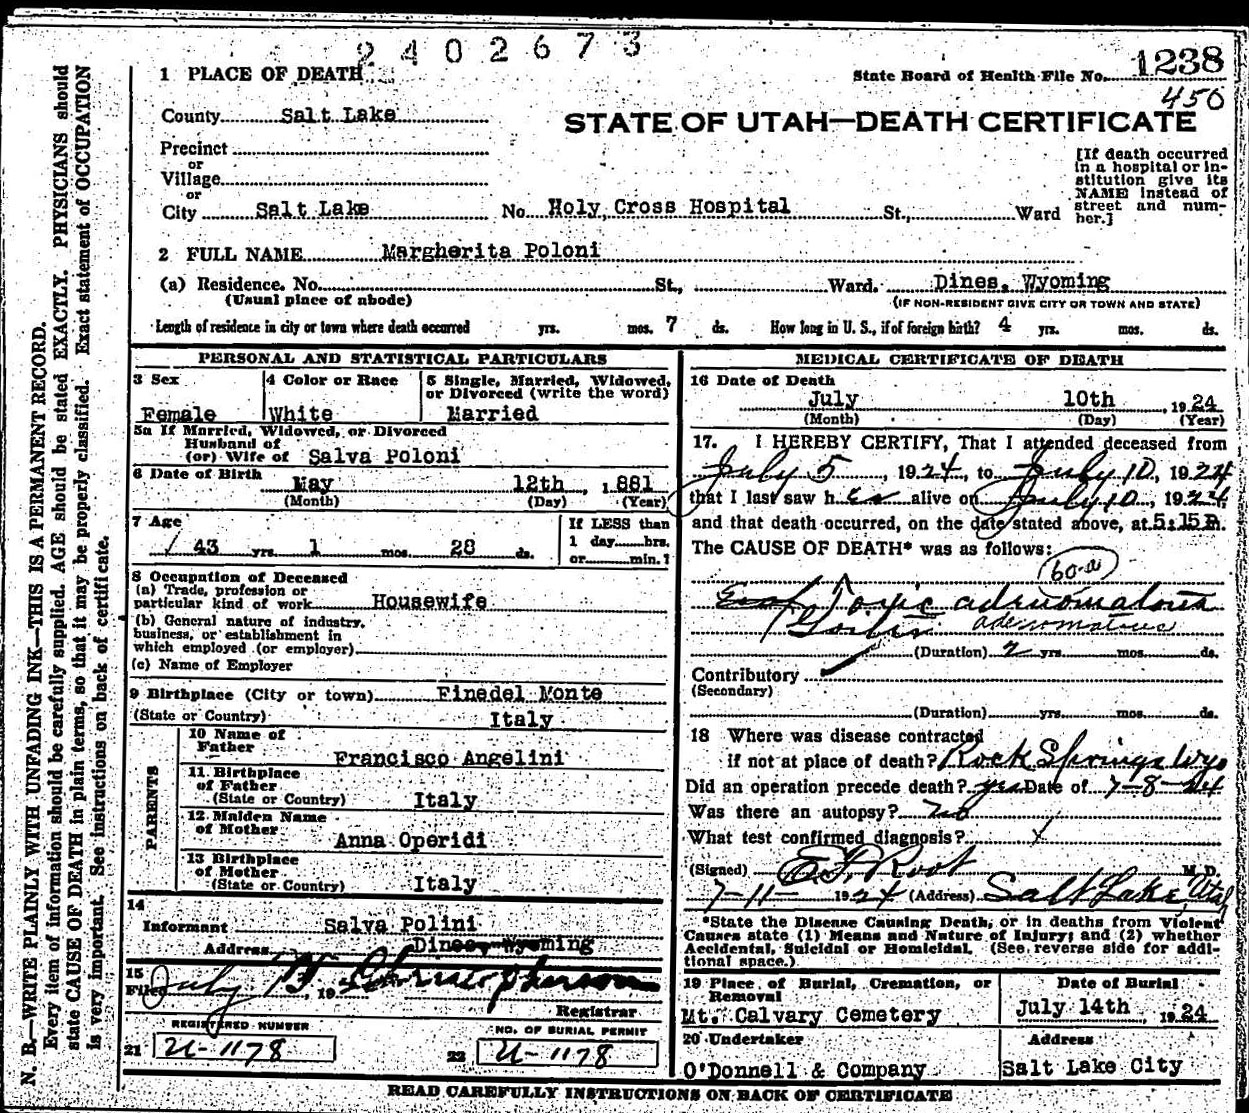 2402673
1 PLACE OF DEATH
State Board of Health File No. 1238
450
County Salt Lake
STATE OF UTAH—DEATH CERTIFICATE
Precinct
or
Village
or
City Salt Lake No. Holy Cross Hospital St., Ward
[If death occurred
in a hospital or in-
stitution give its
NAME instead of
street and num-
ber.]
2 FULL NAME Margherita Poloni
(a) Residence. No. St., Ward. Dines, Wyoming
(Usual place of abode) (IF NON-RESIDENT GIVE CITY OR TOWN AND STATE)
Length of residence in city or town where death occurred yrs. mos. 7 ds. How long in U. S., if of foreign birth? 4 yrs. mos. ds.
PERSONAL AND STATISTICAL PARTICULARS
3 Sex
Female
4 Color or Race
White
5 Single, Married, Widowed,
or Divorced (write the word)
Married
5a If Married, Widowed, or Divorced
Husband of
(or) Wife of Salva Poloni
6 Date of Birth
May 12th, 1881
(Month) (Day) (Year)
7 Age
43 yrs. 1 mos. 28 ds.
If LESS than
1 day hrs.
or min.?
8 Occupation of Deceased
(a) Trade, profession or
particular kind of work Housewife
(b) General nature of industry,
business, or establishment in
which employed (or employer)
(c) Name of Employer
9 Birthplace (City or town) Finedel Monte
(State or Country) Italy
PARENTS
10 Name of
Father Francisco Angelini
11. Birthplace
of Father
(State or Country) Italy
12 Maiden Name
of Mother Anna Operidi
13 Birthplace
of Mother
(State or Country) Italy
14
Informant Salva Polini
Address Dines, Wyoming
15
Filed July 19 Christopherson
Registrar
REGISTERED NUMBER
21 U-1178
NO. OF BURIAL PERMIT
22 U-1178
MEDICAL CERTIFICATE OF DEATH
16 Date of Death
July 10th, 1924
(Month) (Day) (Year)
17. I HEREBY CERTIFY, That I attended deceased from
July 5, 1924, to July 10, 1924
that I last saw her alive on July 10, 1924,
and that death occurred, on the date stated above, at 5:15 P.m.
The CAUSE OF DEATH* was as follows:
60-a
Toxic adenomatous
Goiter adenomatous
(Duration) 2 yrs. mos. ds.
Contributory
(Secondary)
(Duration) yrs. mos. ds.
18 Where was disease contracted
if not at place of death? Rock Springs Wyo
Did an operation precede death? yes Date of 7-8-24
Was there an autopsy? no
What test confirmed diagnosis? X
(Signed) E.F. Root M.D.
7-11- 1924 (Address) Salt Lake, Utah
*State the Disease Causing Death, or in deaths from Violent
Causes state (1) Means and Nature of Injury; and (2) whether
Accidental, Suicidal or Homicidal. (See reverse side for addi-
tional space.)
19 Place of Burial, Cremation, or
Removal
Mt. Calvary Cemetery
Date of Burial
July 14th, 1924
20 Undertaker
O'Donnell & Company
Address
Salt Lake City
READ CAREFULLY INSTRUCTIONS ON BACK OF CERTIFICATE
N. B.—WRITE PLAINLY WITH UNFADING INK—THIS IS A PERMANENT RECORD.
Every item of information should be carefully supplied. AGE should be stated EXACTLY. PHYSICIANS should
state CAUSE OF DEATH in plain terms, so that it may be properly classified. Exact statement of OCCUPATION
is very important. See instructions on back of certificate.